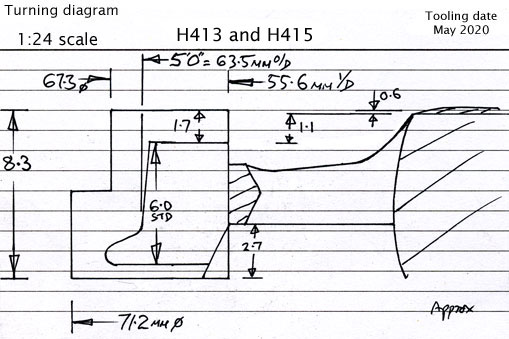 Turning diagram
1:24 scale
H413 and H415
Tooling date
May 2020
5'0" = 63.5 MM O/D
67.3 ø
55.6 MM I/D
0.6
1.7
1.1
8.3
6.0
STD
2.7
71.2 MM ø
Approx